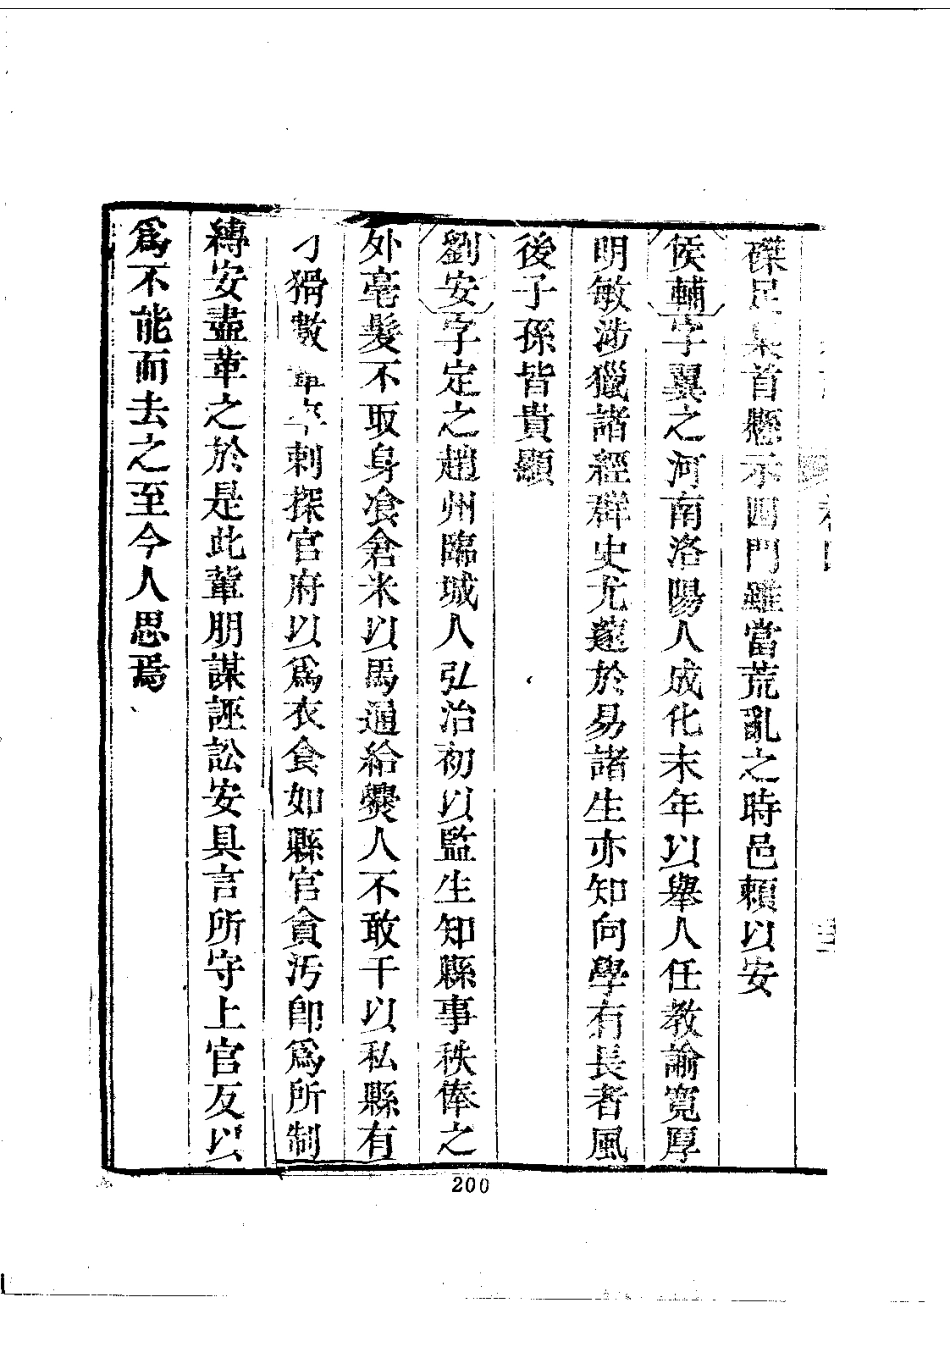 磔足梟首懸示四門雖當荒亂之時邑賴以安
侯輔字翼之河南洛陽人成化末年以舉人任教諭寬厚
明敏涉獵諸經群史尤邃於易諸生亦知向學有長者風
後子孫皆貴顯
劉安字定之趙州臨城人弘治初以監生知縣事秩俸之
外毫髮不取身飡倉米以馬通給爨人不敢干以私縣有
刁猾數輩卒刺探官府以爲衣食如縣官貪汚卽爲所制
縛安盡革之於是此輩朋謀誣訟安具言所守上官反以
爲不能而去之至今人思焉
200